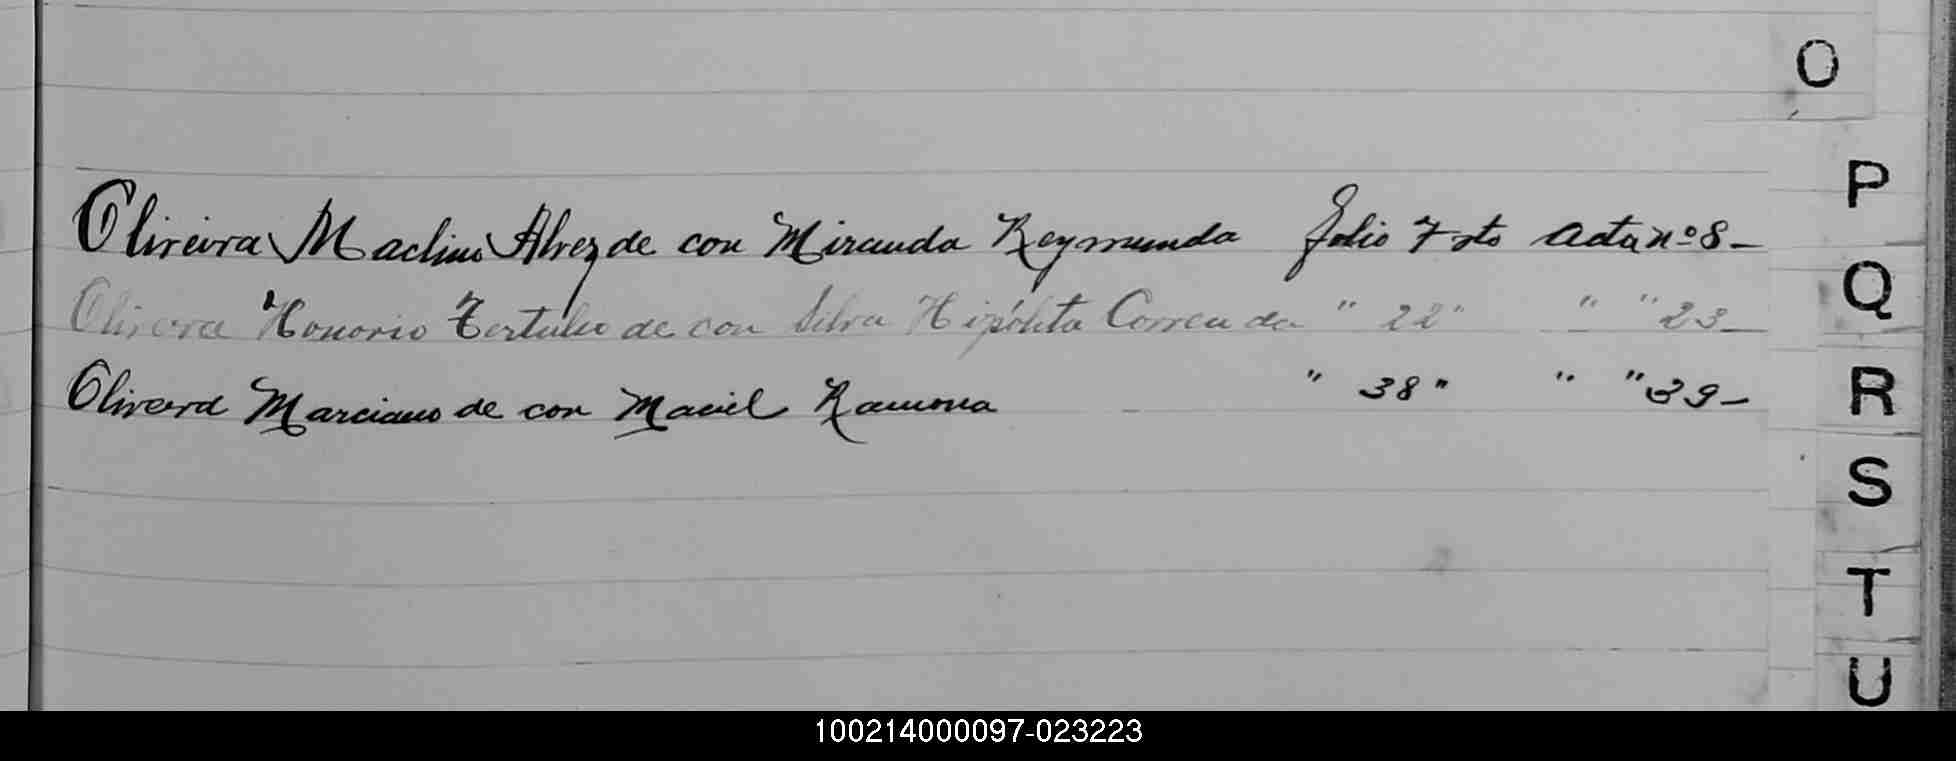 O
Oliveira Maclino Alvez de con Miranda Reymunda folio 7 sto acta nº 8 -
P
Q
Olivera Honorio Tertulio de con Silva Hipólita Correa da " 22 " " " 23 -
Olivera Marciano de con Maciel Ramona " 38 " " " 39 -
R
S
T
U
100214000097-023223